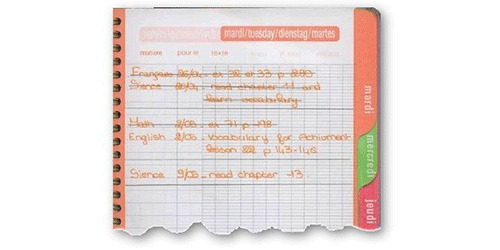 mardi/tuesday/dienstag/martes
matière pour le texte
Français 26/04 - ex 32 et 33 p 283
Sience 26/04 - read chapter 11 and
learn vocabulary
Math 2/05 - ex 71 p 198
English 2/05 - vocabulary for Achiument
lesson 22 p 143-145
Sience 9/05 - read chapter 13.
mardi
mercredi
jeudi